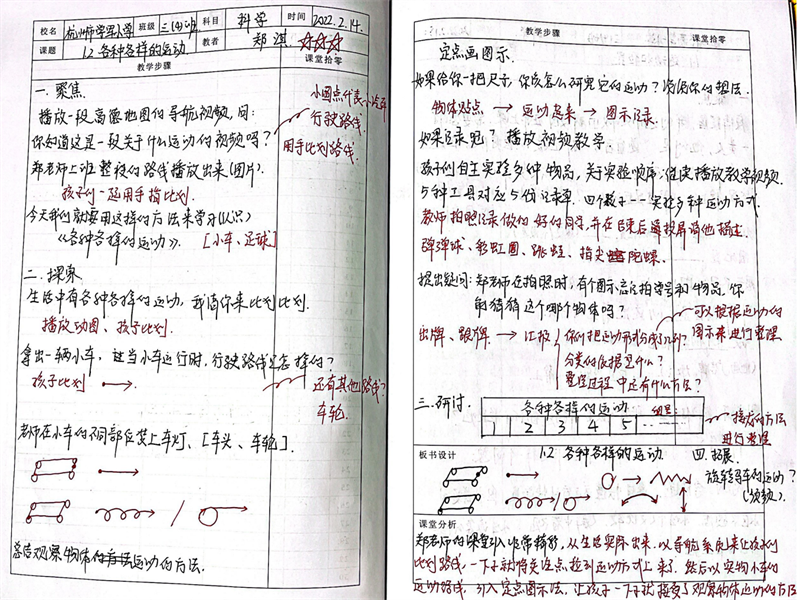 校名 杭州市学军小学 班级 三(4)班 科目 科学 时间 2022.2.14.
课题 1.2 各种各样的运动 教者 郑淇 ☆☆☆
教学步骤 课堂拾零
一、聚焦
播放一段高德地图的导航视频,问:
你知道这是一段关于什么运动的视频吗?
小圆点代表小汽车
行驶路线.
用手比划路线.
郑老师上班整段的路线播放出来(图片)
孩子们一起用手指比划.
今天我们就要用这样的方法来学习(认识)
《各种各样的运动》. [小车、足球]
二、探索
生活中有各种各样的运动,我请你来比划比划.
播放动图、孩子比划.
拿出一辆小车,这当小车运行时,行驶路线是怎样的?
孩子比划
还有其他路线?
车轮.
老师在小车的不同部位装上车灯、[车头、车轮].
总结观察物体的方法运动的方法.
教学步骤 课堂拾零
定点画图示.
如果给你一把尺子,你该怎么研究它的运动?说说你的想法.
物体贴点 → 运动起来 → 图示记录.
如果记录呢?播放视频教学.
孩子们自主实验多种物品,关于实验顺序;继续播放教学视频.
5种工具对应5份记录单.四个孩子一一实验多种运动方式.
教师拍照记录做的好的同学,并在结束后投屏请他描述.
弹弹球、彩虹圈、跳蛙、指尖陀螺.
提出疑问:郑老师在拍照时,有个图示忘记拍学号和物品,你
能猜猜这个哪个物体吗?
可以根据运动的
图示来进行整理
出牌、跟牌 → 汇报 你们把运动形式分成了几列?
分类的依据是什么?
整理过程中还有什么方法?
三、研讨.
各种各样的运动 组号:
1 2 3 4 5
接龙的方法
进行整理
板书设计 1.2 各种各样的运动 四、拓展.
旋转马车的运动?
(视频)
课堂分析
郑老师的课堂引入非常精彩,从生活实际出来.以导航系统来让孩子们
比划路线,一下子就将关注点拉到运动方式上来了.然后以实物小车的
运动路线,引入定点图示法,让孩子一下子就接受了观察物体运动的方法